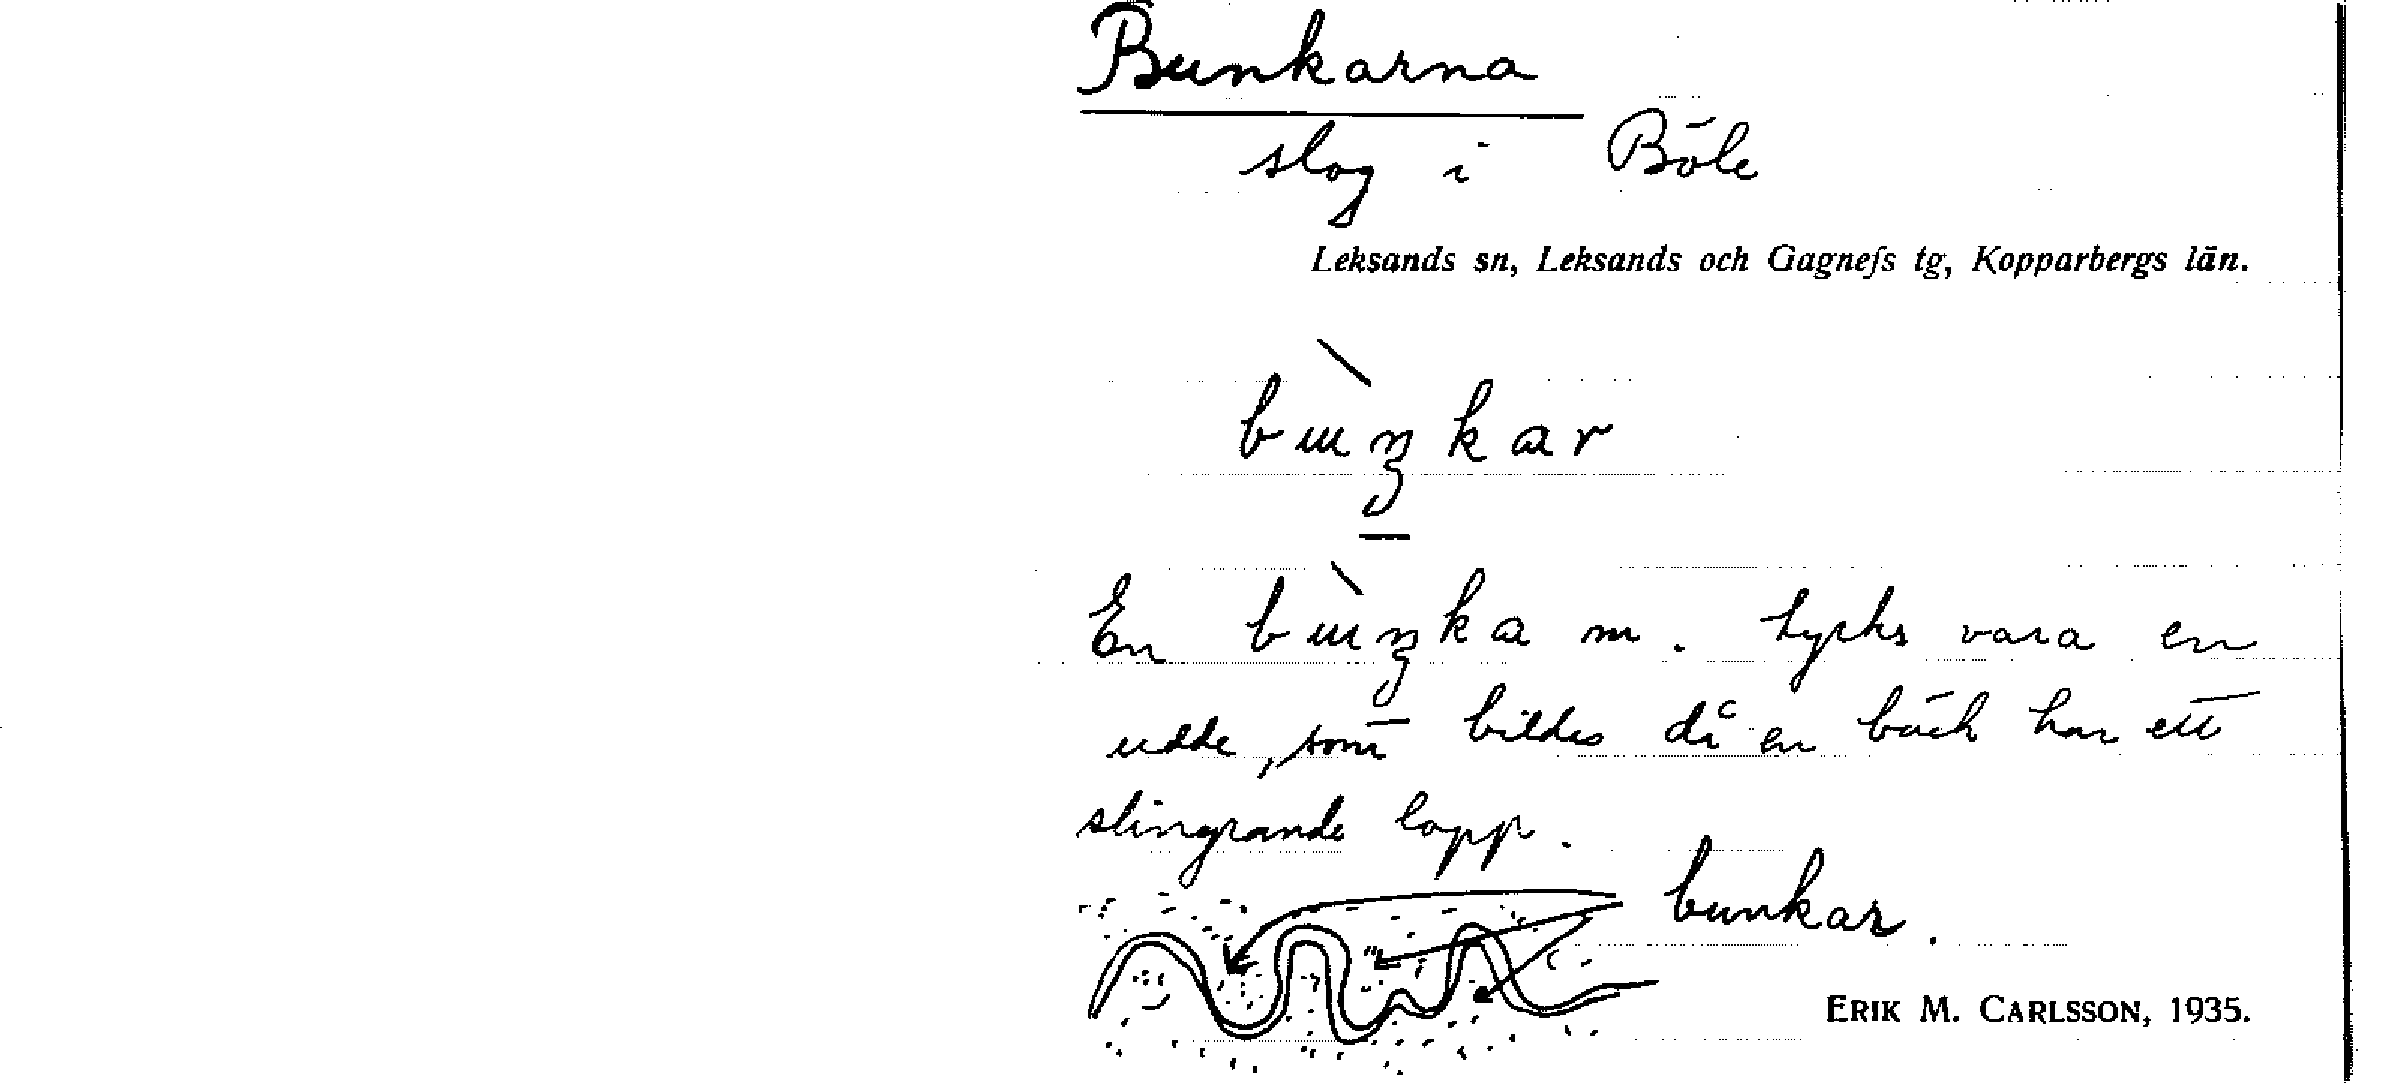 Bunkarna
slog i Böle
Leksands sn, Leksands och Gagnefs tg, Kopparbergs län.
bɯ̀ŋkar
En bɯ̀ŋka m. tycks vara en
udde, som bildas då en bäck har ett
slingrande lopp.
bunkar.
ERIK M. CARLSSON, 1935.